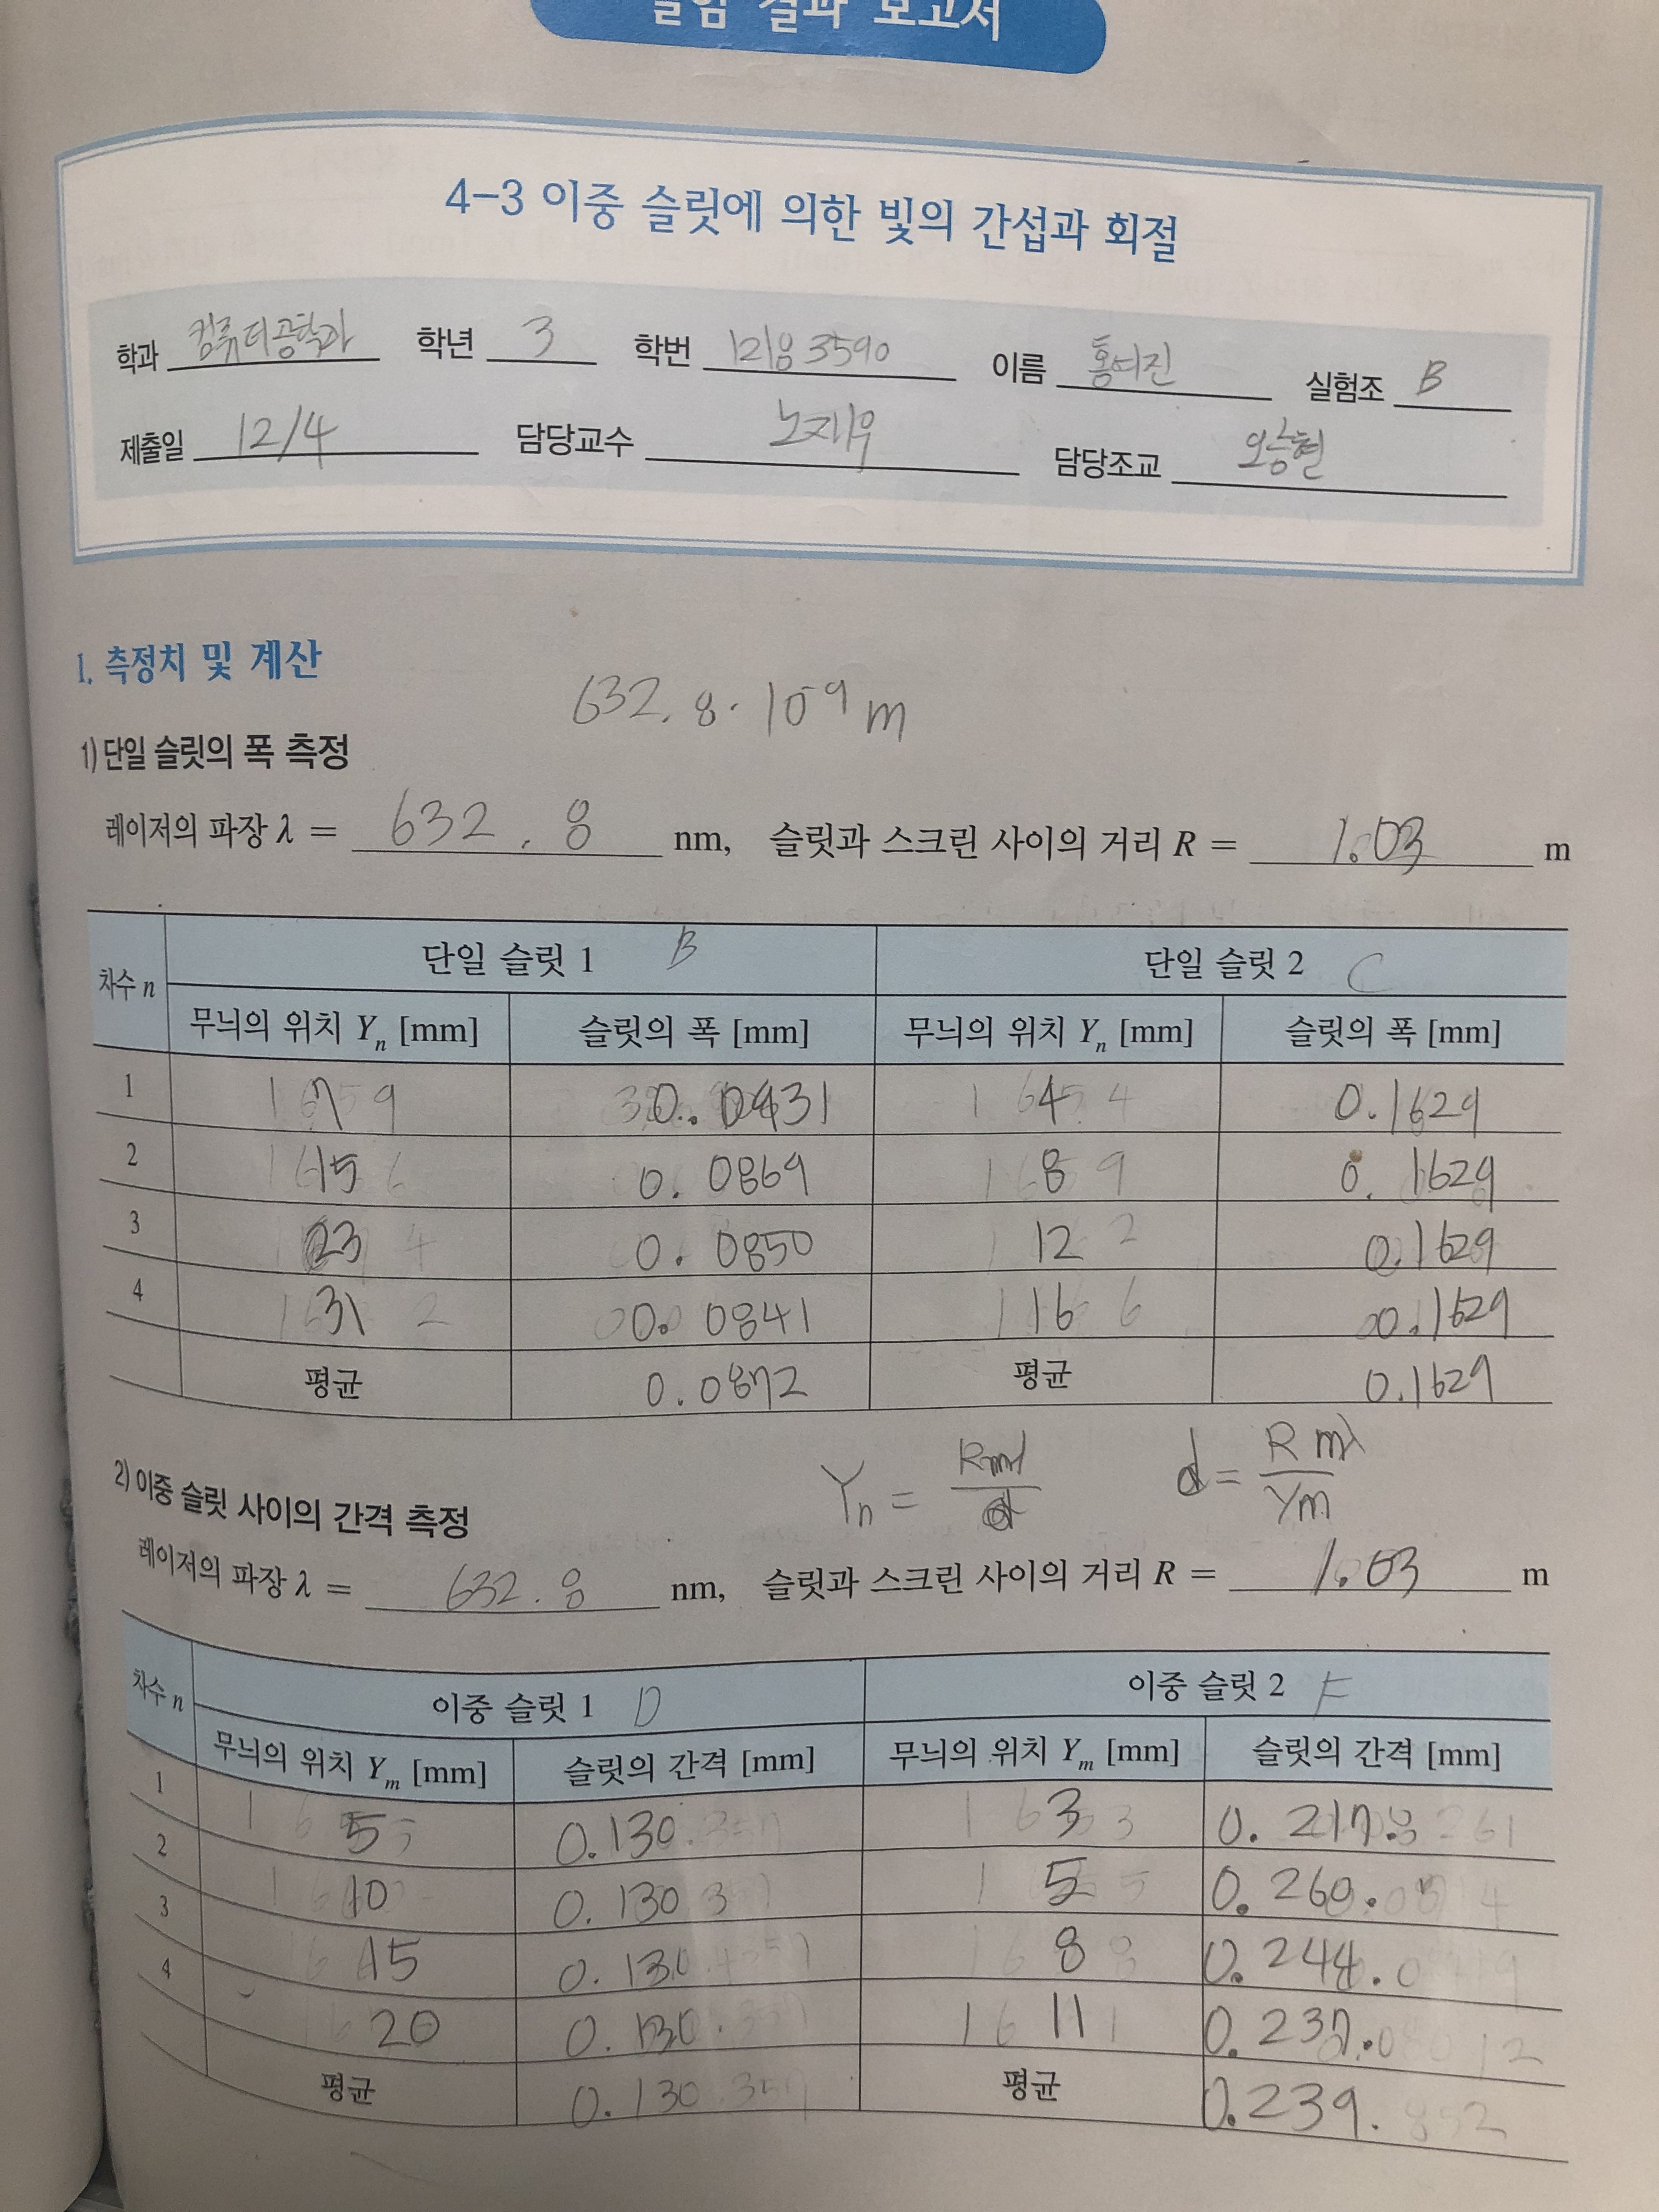 실험 결과 보고서
4-3 이중 슬릿에 의한 빛의 간섭과 회절
학과 컴퓨터공학과 학년 3 학번 12183590 이름 홍여진 실험조 B
제출일 12/4 담당교수 노재우 담당조교 오승현
1. 측정치 및 계산
632.8·10⁻⁹m
1) 단일 슬릿의 폭 측정
레이저의 파장 λ = 632.8 nm, 슬릿과 스크린 사이의 거리 R = 1.03 m
차수 n 단일 슬릿 1 B 단일 슬릿 2 C
무늬의 위치 Yn [mm] 슬릿의 폭 [mm] 무늬의 위치 Yn [mm] 슬릿의 폭 [mm]
1 7 0.0931 4 0.1629
2 15 0.0869 8 0.1629
3 23 0.0850 12 0.1629
4 31 0.0841 16 0.1629
평균 0.0872 평균 0.1629
Yn = Rmλ/d d = Rmλ/Ym
2) 이중 슬릿 사이의 간격 측정
레이저의 파장 λ = 632.8 nm, 슬릿과 스크린 사이의 거리 R = 1.03 m
차수 n 이중 슬릿 1 D 이중 슬릿 2 F
무늬의 위치 Ym [mm] 슬릿의 간격 [mm] 무늬의 위치 Ym [mm] 슬릿의 간격 [mm]
1 5 0.130 3 0.217
2 10 0.130 5 0.260
3 15 0.130 8 0.244
4 20 0.130 11 0.237
평균 0.130 평균 0.239